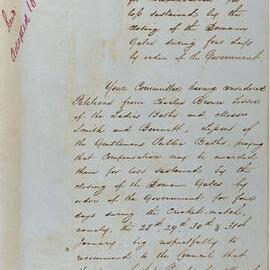 for compensation for
loss sustained by the
closing of the Domain
Gates during four days
by order of the Government.
Your Committee having considered
Petitions from Charles Brown Lessee
of the Ladies Baths and Messrs
Smith and Bennett, Lessees of
the Gentlemens Public Baths, praying
that Compensation may be awarded
them for loss sustained by the
closing of the Domain Gates by
orders of the Government for four
days during the Cricket-match,
namely, the 28th 29th 30th & 31st
January, beg respectfully to
recommend to the Council that